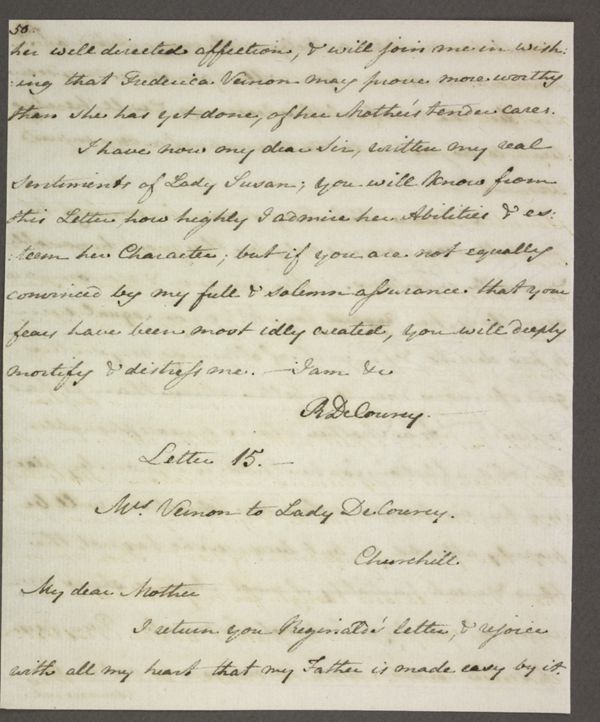 50.
her well directed affection, & will join me in wish:
:ing that Frederica Vernon may prove more worthy
than she has yet done, of her Mother's tender cares.
I have now my dear Sir, written my real
Sentiments of Lady Susan; you will know from
this Letter, how highly I admire her Abilities & es:
:teem her Character; but if you are not equally
convinced by my full & solemn assurance that your
fears have been most idly created, you will deeply
mortify & distress me. — I am &c
R De Courcy.—
Letter 15.—
Mrs. Vernon to Lady De Courcy.
Churchill.
My dear Mother
I return you Reginald's letter, & rejoice
with all my heart that my Father is made easy by it.